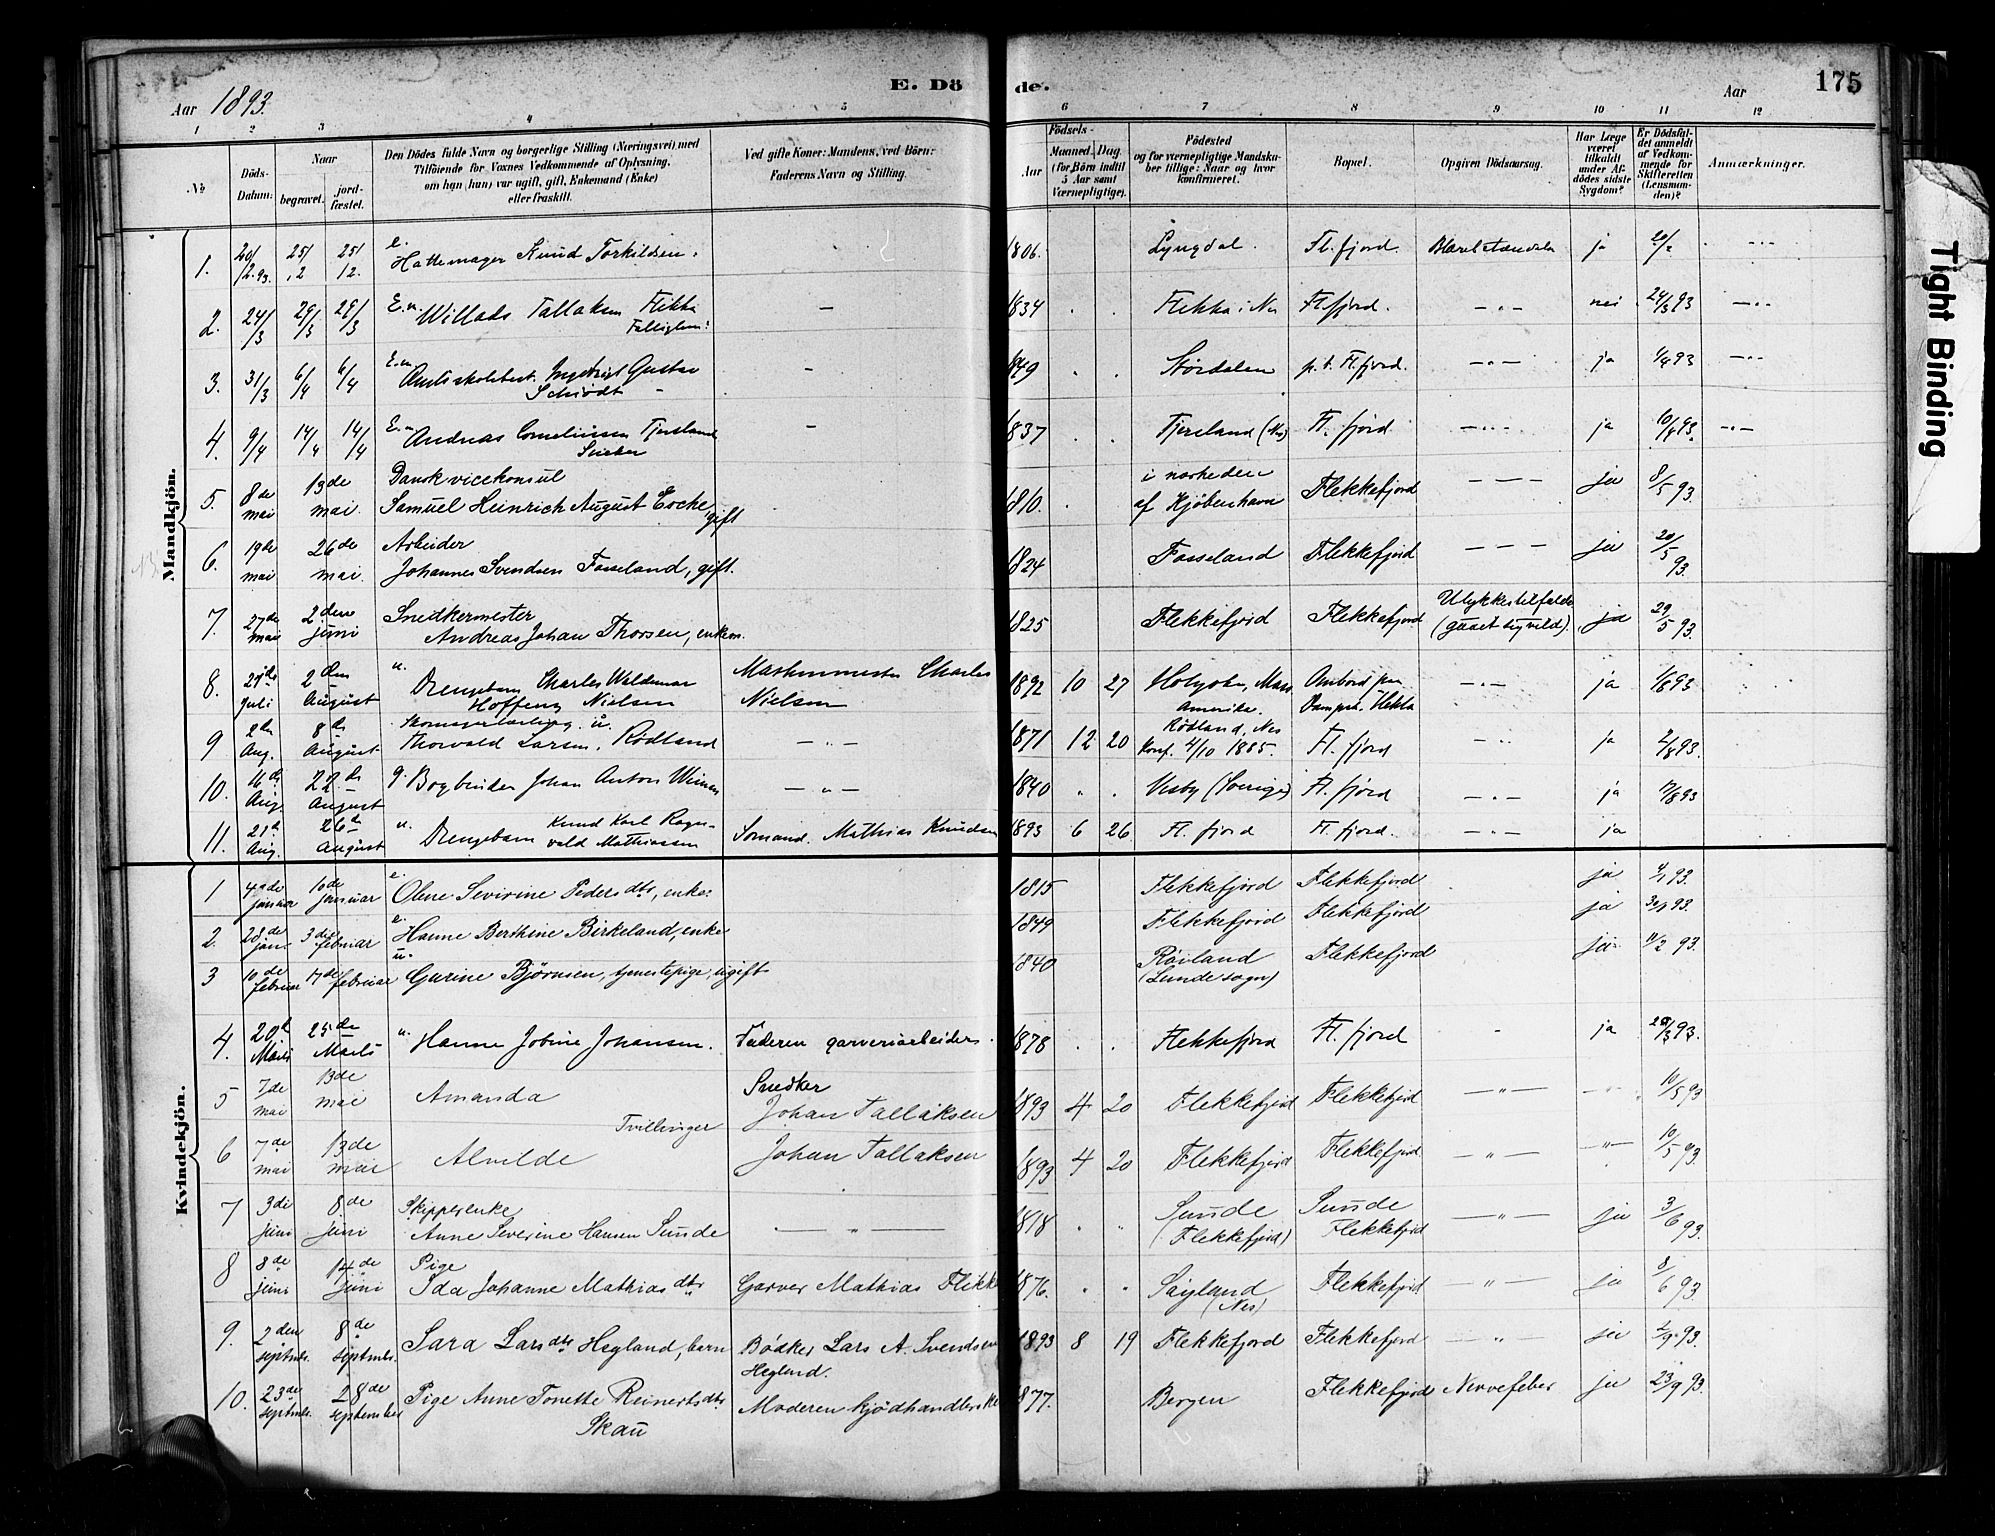 E. Döde.
175
Aar 1893.
Aar
1 2 3 4 5 6 7 8 9 10 11 12
No
Döds-Datum.
Naar
begravet.
jord-fæstet.
Den Dödes fulde Navn og borgerlige Stilling (Næringsvei) med
Tilföiende for Voxnes Vedkommende af Oplysning,
om han (hun) var ugift, gift, Enkemand (Enke)
eller fraskilt.
Ved gifte Koner: Mandens, ved Börn:
Faderens Navn og Stilling.
Födsels-
Aar
Maaned. Dag.
(for Börn indtil
5 Aar samt
Værnepligtige).
Födested
og for værnepligtige Mandska-
ber tillige: Naar og hvor
konfirmeret.
Bopæl.
Opgiven Dödsaarsag.
Har Læge
været
tilkaldt
under Af-
dödes sidste
Sygdom?
Er Dödsfal-
det anmeldt
af Vedkom-
mende for
Skifteretten
(Lensman-
den)?
Anmærkninger.
Mandkjön.
1. 20/2.93. 25/2 25/2. e. Hattemager Knud Torkildsen. 1806. Lyngdal. Fl. fjord. ja 20/2
2. 24/3 29/3 29/3 E.m. Willads Tallaksen Flikka — 1834 Flekka i Nes Fl. fjord. — " — nei 24/3 93 — " —
3. 31/3 6/4 6/4 Gustav Schiödt — 1849 Stördalen p.t. Fl. fjord. — " — ja 1/4 93 — " —
4. 9/4 14/4 14/4 E.m. Andreas Corneliussen Tjersland — 1837 Tjersland (Nes) Fl. fjord — " — ja 10/4 93. — " —
5. 8de mai 13de mai. Dansk vicekonsul
Samuel Heinrich August Eecke, gift 1810. i nærheden af Kjøbenhavn Flekkefjord — — — ja 8/5 93.
6. 19de mai 26de mai. Arbeider
Johannes Svendsen Fosseland, gift. 1824 Fosseland Flekkefjord — — — ja 20/5 93.
7. 27de mai 2den juni Snedkermester
Andreas Johan Thorsen, enkem. 1825 Flekkefjord Flekkefjord Ulykkestilfælde ja 29/5 93.
8. juli 2den August u. Drengebarn Charles Waldemar
Nielsen Maskinmester Charles Nielsen 1892 10 27 Holyoke, Mass. Amerika. Ombord paa Dampsk. Hekla — " — ja 1/8 93
9 2den Aug. 8de August u.
Thorvald Larsen, Rødland — " — 1871 12 20 Rødland, Nes
Konf. 4/10 1885. Fl. fjord ja 2/8 93.
10. 16de Aug. 22de August g. Bogbinder Johan Anton — " — 1840 " . Visby (Sverige) Fl. fjord — " — ja 17/8 93
11. 21de Aug. 26de August u. Drengebarn Knud Karl Ragn-
vald Mathiassen Sömand. Mathias Knudsen 1893 6 26 Fl. fjord Fl. fjord. — " — ja
Kvindekjön.
1 4de januar 10de januar e. Olene Sevirine Pedersdtr, enke. 1815 Flekkefjord Flekkefjord ja 4/1 93.
2. 28de jan. 3die februar e. Hanne Berthine Birkeland, enke 1849 Flekkefjord Flekkefjord ja 30/1 93.
3 10de februar 17de februar u. Gurine Bjørnsen, tjenestepige, ugift 1840 Røiland
(Lunde sogn) Flekkefjord ja 11/2 93.
4. 20de Marts 25de Marts u. Hanne Jobine Johansen. Faderen garveriarbeider. 1878 Flekkefjord Fl. fjord ja 20/3 93.
5 7de mai 13de mai Amanda Snedker
Johan Tallaksen 1893 4 20 Flekkefjord Flekkefjord — " — 10/5 93
Tvillinger
6 7de mai 13de mai Alvilde Johan Tallaksen 1893 4 20 Flekkefjord Flekkefjord — " — — " — 10/5 93.
7 3die juni 8de juni Skipperenke
Anne Severine Hansen Sunde — " — 1818 . " Sunde
(Flekkefjord) Sunde
Flekkefjord — " — ja 3/6 93.
8 8de juni 14de juni Pige
Ida Johanne Mathiasdtr Garver Mathias Flikke 1876. " " (Nes) Flekkefjord — " — ja 8/6 93.
9. 2den septmb. 8de septmb. Sara Larsdtr Hegland, barn Bödker Lars A. Svendsen
Hegland. 1893 8 19 Flekkefjord Flekkefjord — " — ja 2/9 93.
10. 23de septmb. 28de september Pige Anne Tonette Reinertsdtr
Skau Moderen kjödhandlerske 1877. Bergen Flekkefjord Nervefeber ja 23/9 93.
Tight Binding